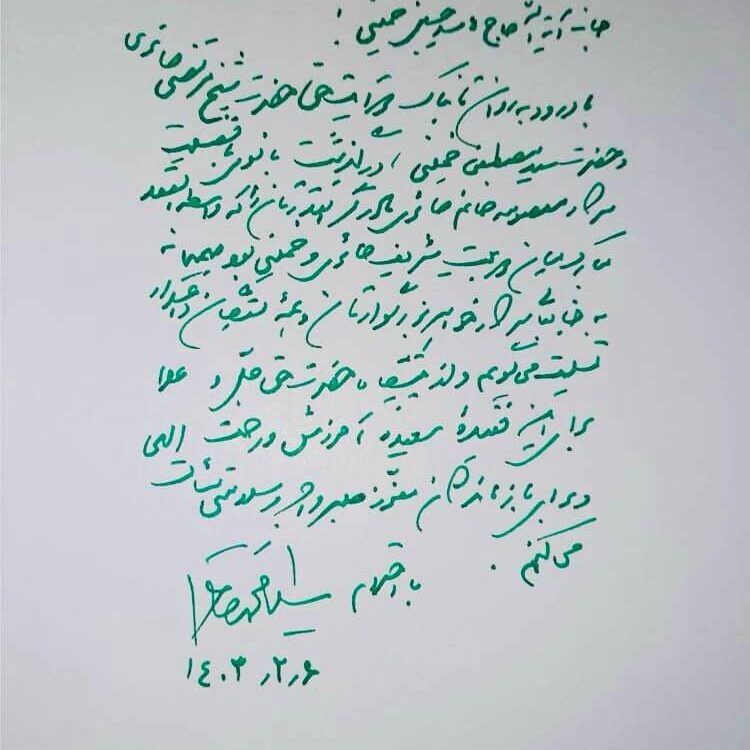 جناب آیت الله حاج سید حسین خمینی!
با درود به روان تابناک حضرت شیخ مرتضی حائری
و حضرت سید مصطفی خمینی، درگذشت بانوی فضیلت
سرکار معصومه خانم حائری مادر گرانقدرتان را که واسطة العقد
میان دو بیت شریف حائری و خمینی بود صمیمانه
به جنابعالی سرکار خواهر بزرگوارتان و همهٔ داغدار
تسلیت می‌گویم و از پیشگاه حضرت حق جلّ و علا
برای این فقیدهٔ سعیده آمرزش و رحمت الهی
و برای بازماندگان معزز صبر و اجر و سلامتی مسألت
می‌کنم.
با احترام
سید محمد خاتمی
۱٤۰۳٫۲٫۶